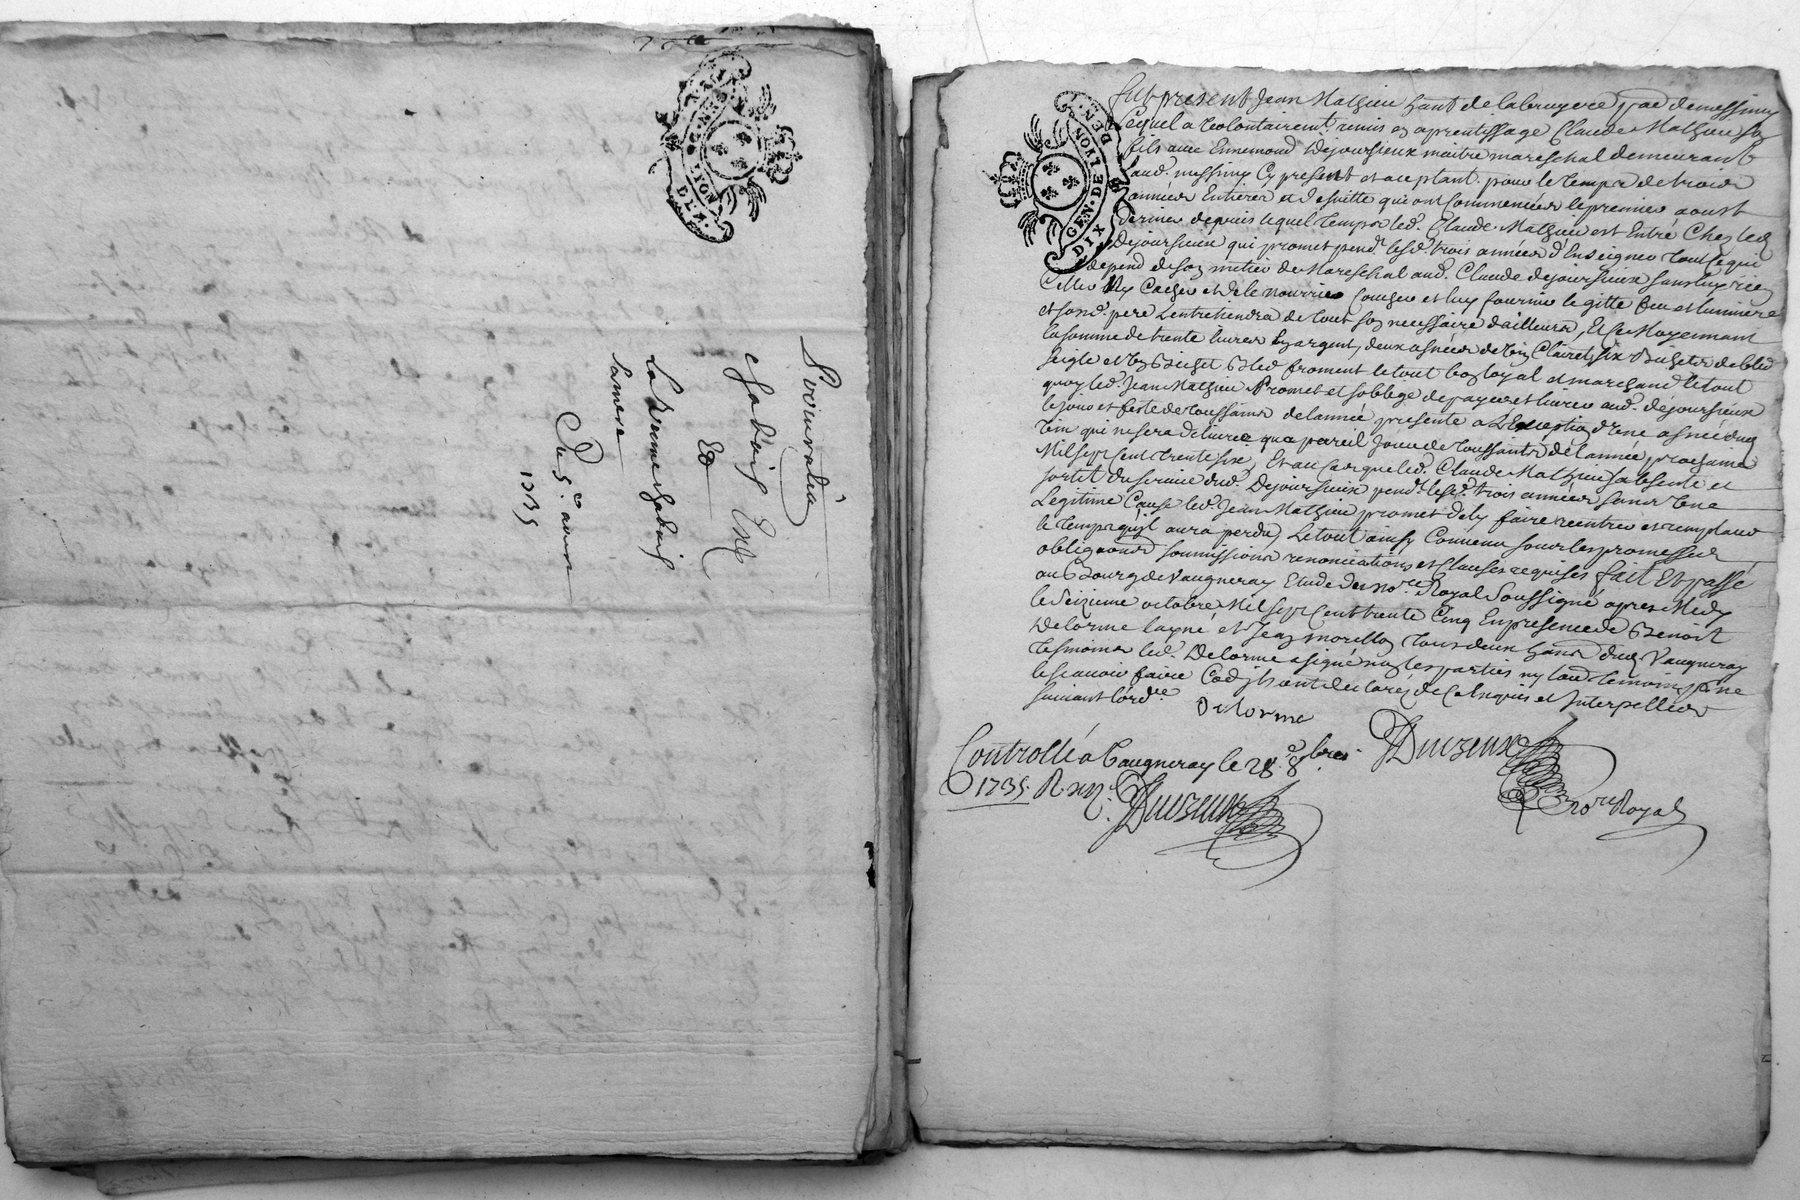 GEN. DE LYON
DIX DEN.
Procuration
chaduis
Et
La Dame chaduis
Du 5e aoust
1735
GEN. DE LYON
DIX DEN.
fut present Jean Mathieu hant de labruyere par demessimy
Lequel a volontairemt remis en aprentissage Claude Mathieu son
fils avec Ennemond Dejoursieux maitre mareschal demeurant
aud. messimy Cy present et aceptant pour le temps de trois
années Entieres et de suitte qui ont Commencées le premier aoust
dernier depuis lequel temps led. Claude Mathieu est Entré Chez led
Dejoursieux qui promet pend. lesd. trois années d'Enseigner tout ce qui
depend de son metier de Mareschal aud. Claude dejoursieux sans luy rien
Celler Ny Cacher et de le nourrir Coucher et luy fournir le gitte feu et lumiere
et sond. pere L'entretiendra de tout son necessaire d'ailleurs, Et Ce Moyennant
la somme de trente livres En argent, deux asnées de vin Clairet, six Bichets de bled
seigle et un Bichet Bled froment le tout bon loyal et marchand le tout
quoy led. Jean Mathieu Promet et soblige de payer et livrer aud. dejoursieux
le jour et feste de toussaints de lannée presente a L'Exception d'une asnée dud
vin qui ne sera delivrée qua pareil Jour de toussaints de lannée prochaine
Mil sept Cent trente six, Et au Cas que led. Claude Mathieu sabsente et
sortit du service dud. Dejoursieux pend. lesd. trois années sans une
Legitime Cause led. Jean Mathieu promet de ly faire rentrer et remplacer
le temps quil aura perdu, Le tout ainsy Convenu sous les promesses
obligaons soumissions renonciations et Clauses requises fait Et passé
au Bourg de Vaugneray Etude du nore Royal Soussigné apres Midy
le seizieme octobre Mil sept Cent trente Cinq En presence de Benoit
Delorme layné et Jean morellon tous deux hants dud. Vaugneray
tesmoins led. Delorme a signé non les parties ny laud. temoin pour ne
le scavoir faire Cod ils ont declaréz de Ce Enquis et Interpelléz
suivant lordce
Delorme
Duvzeux
nore Royal
Controllé a Vaugneray le 28e 8bre
1735. R.
Duvzeux